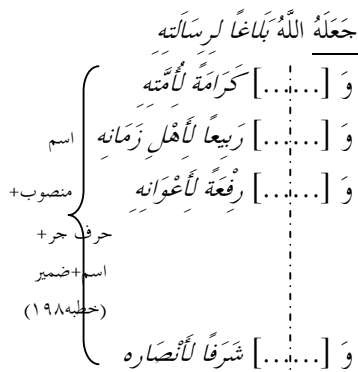 جَعَلَهُ اللَّهُ بَلَاغًا لِرِسَالَتِهِ
وَ [......] كَرَامَةً لُأُمَّتِهِ
وَ [......] رَبِيعًا لَأَهْلِ زَمَانِهِ
وَ [......] رِفْعَةً لَأَعْوَانِهِ
وَ [......] شَرَفًا لَأَنْصَارِهِ
اسم
منصوب+
حرف جر+
اسم+ضمیر
(خطبه۱۹۸)